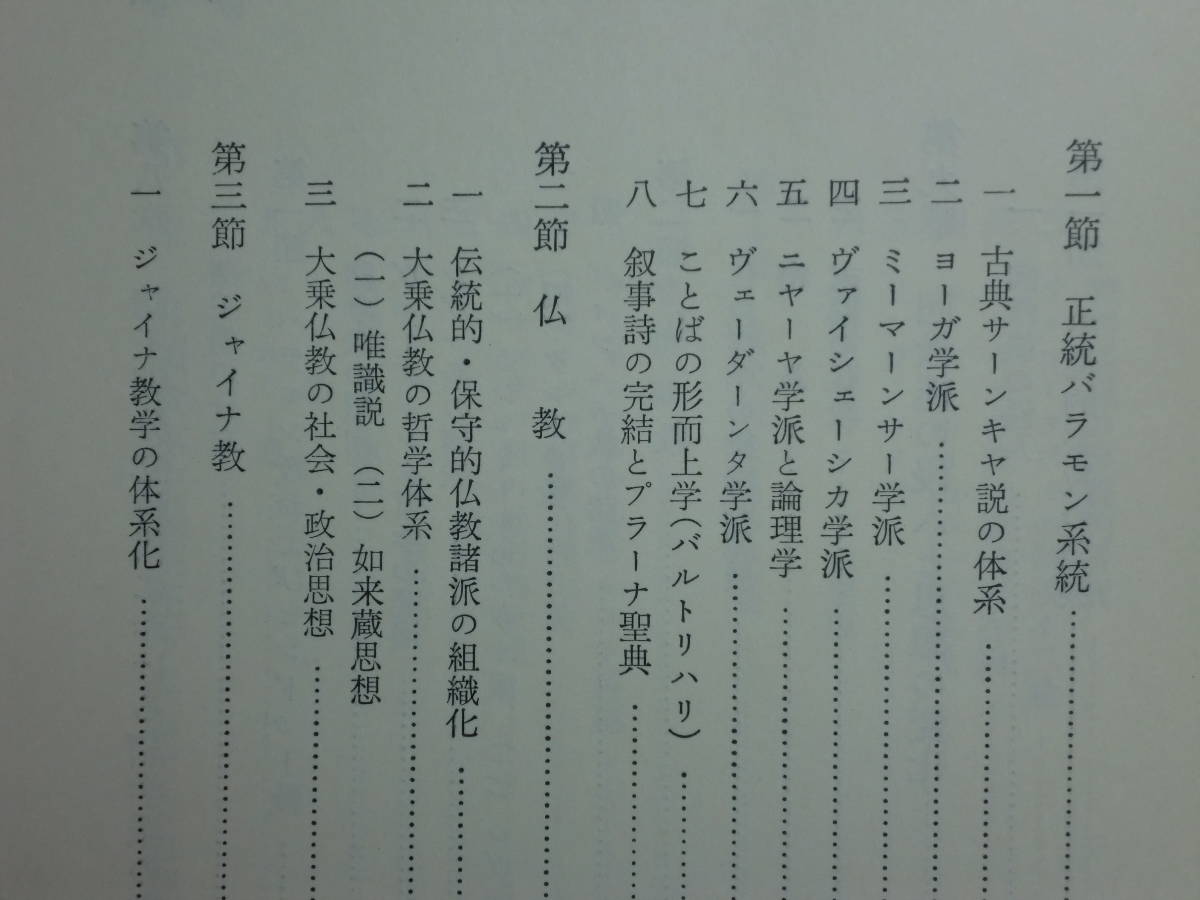 第一節 正統バラモン系統
一 古典サーンキヤ説の体系
二 ヨーガ学派
三 ミーマーンサー学派
四 ヴァイシェーシカ学派
五 ニヤーヤ学派と論理学
六 ヴェーダーンタ学派
七 ことばの形而上学(バルトリハリ)
八 叙事詩の完結とプラーナ聖典
第二節 仏教
一 伝統的・保守的仏教諸派の組織化
二 大乗仏教の哲学体系
(一) 唯識説 (二) 如来蔵思想
三 大乗仏教の社会・政治思想
第三節 ジャイナ教
一 ジャイナ教学の体系化